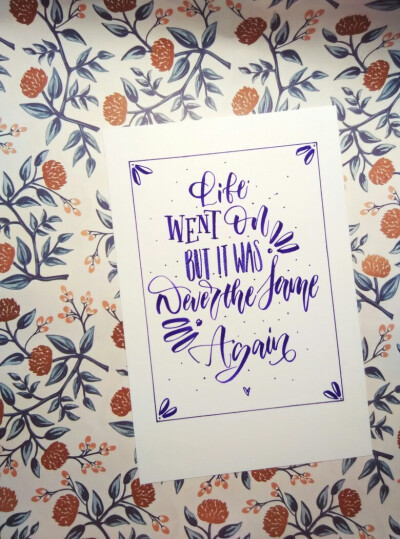 Life
WENT On
BUT IT WAS
Never the Same
Again